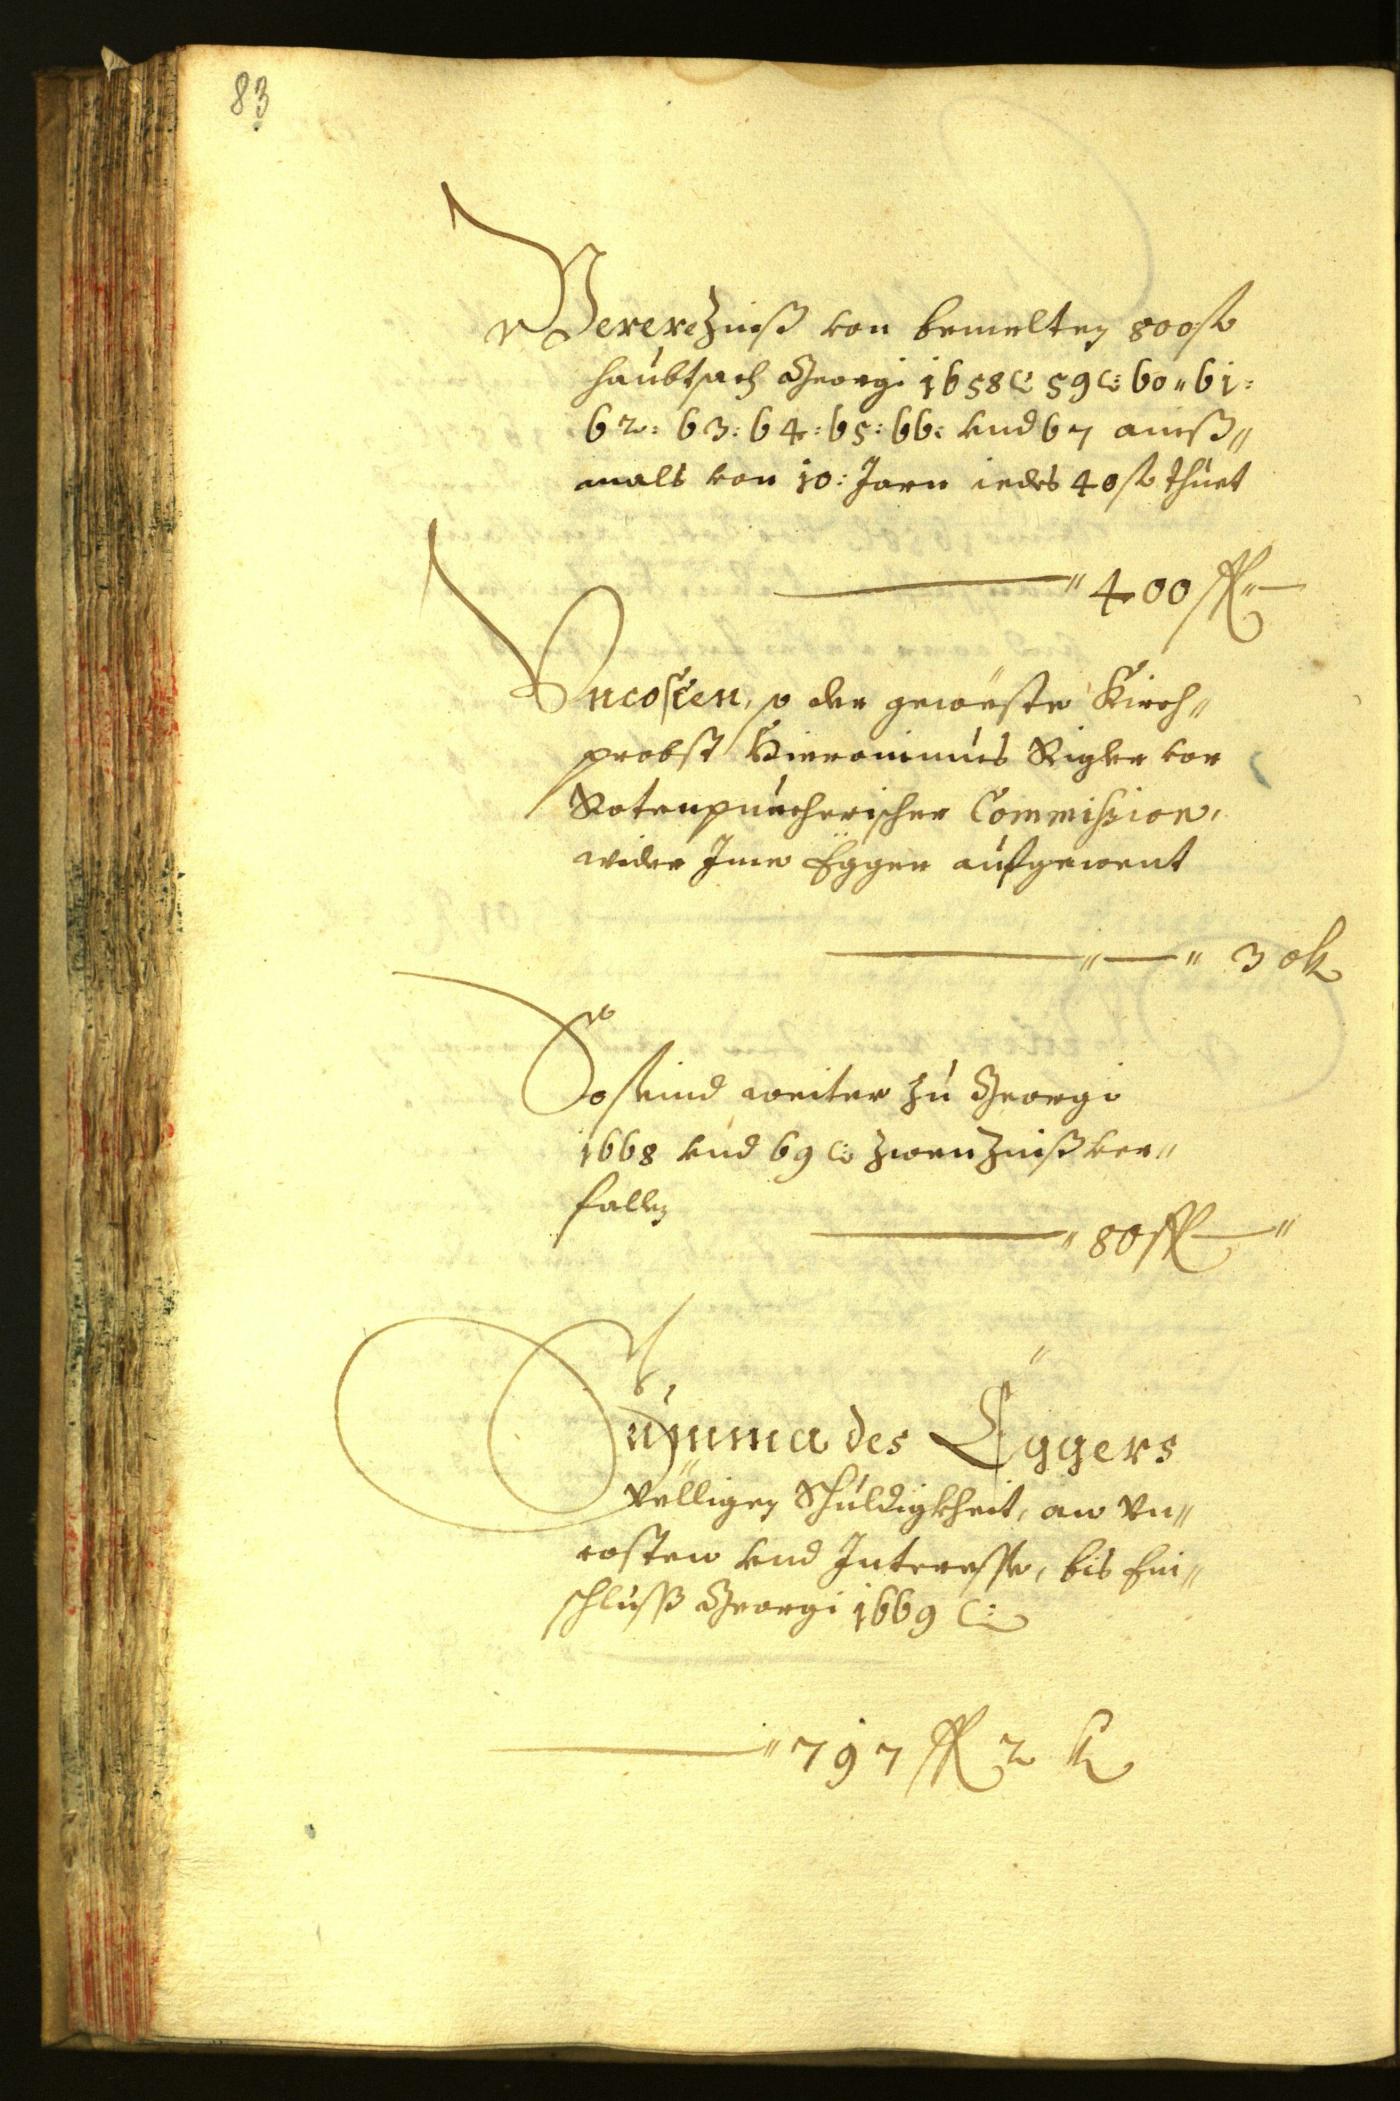 83
Mererzinß von bemelten 800 fl
haubtsach Georgi 1658 et 59 et 60 " 61:
62: 63: 64: 65: 66: vnd 67 ainß"
mals von 10: Jarn iedes 40 fl thuet
" 400 fl "
Vncosten, so der geweste Kirch"
probst Hieronimus Rigler vor
Rotenpuecherischer Commission,
wider Ime Egger aufgewent
" — " 30 k
So seind weiter zu Georgi
1668 vnd 69 zwen Zinß ver"
fallen
" 80 fl — "
Summa des Eggers
völligen Schuldigkheit, an Vn"
costen vnd Interesse, bis Ein"
schluss Georgi 1669
" 797 fl 2 k